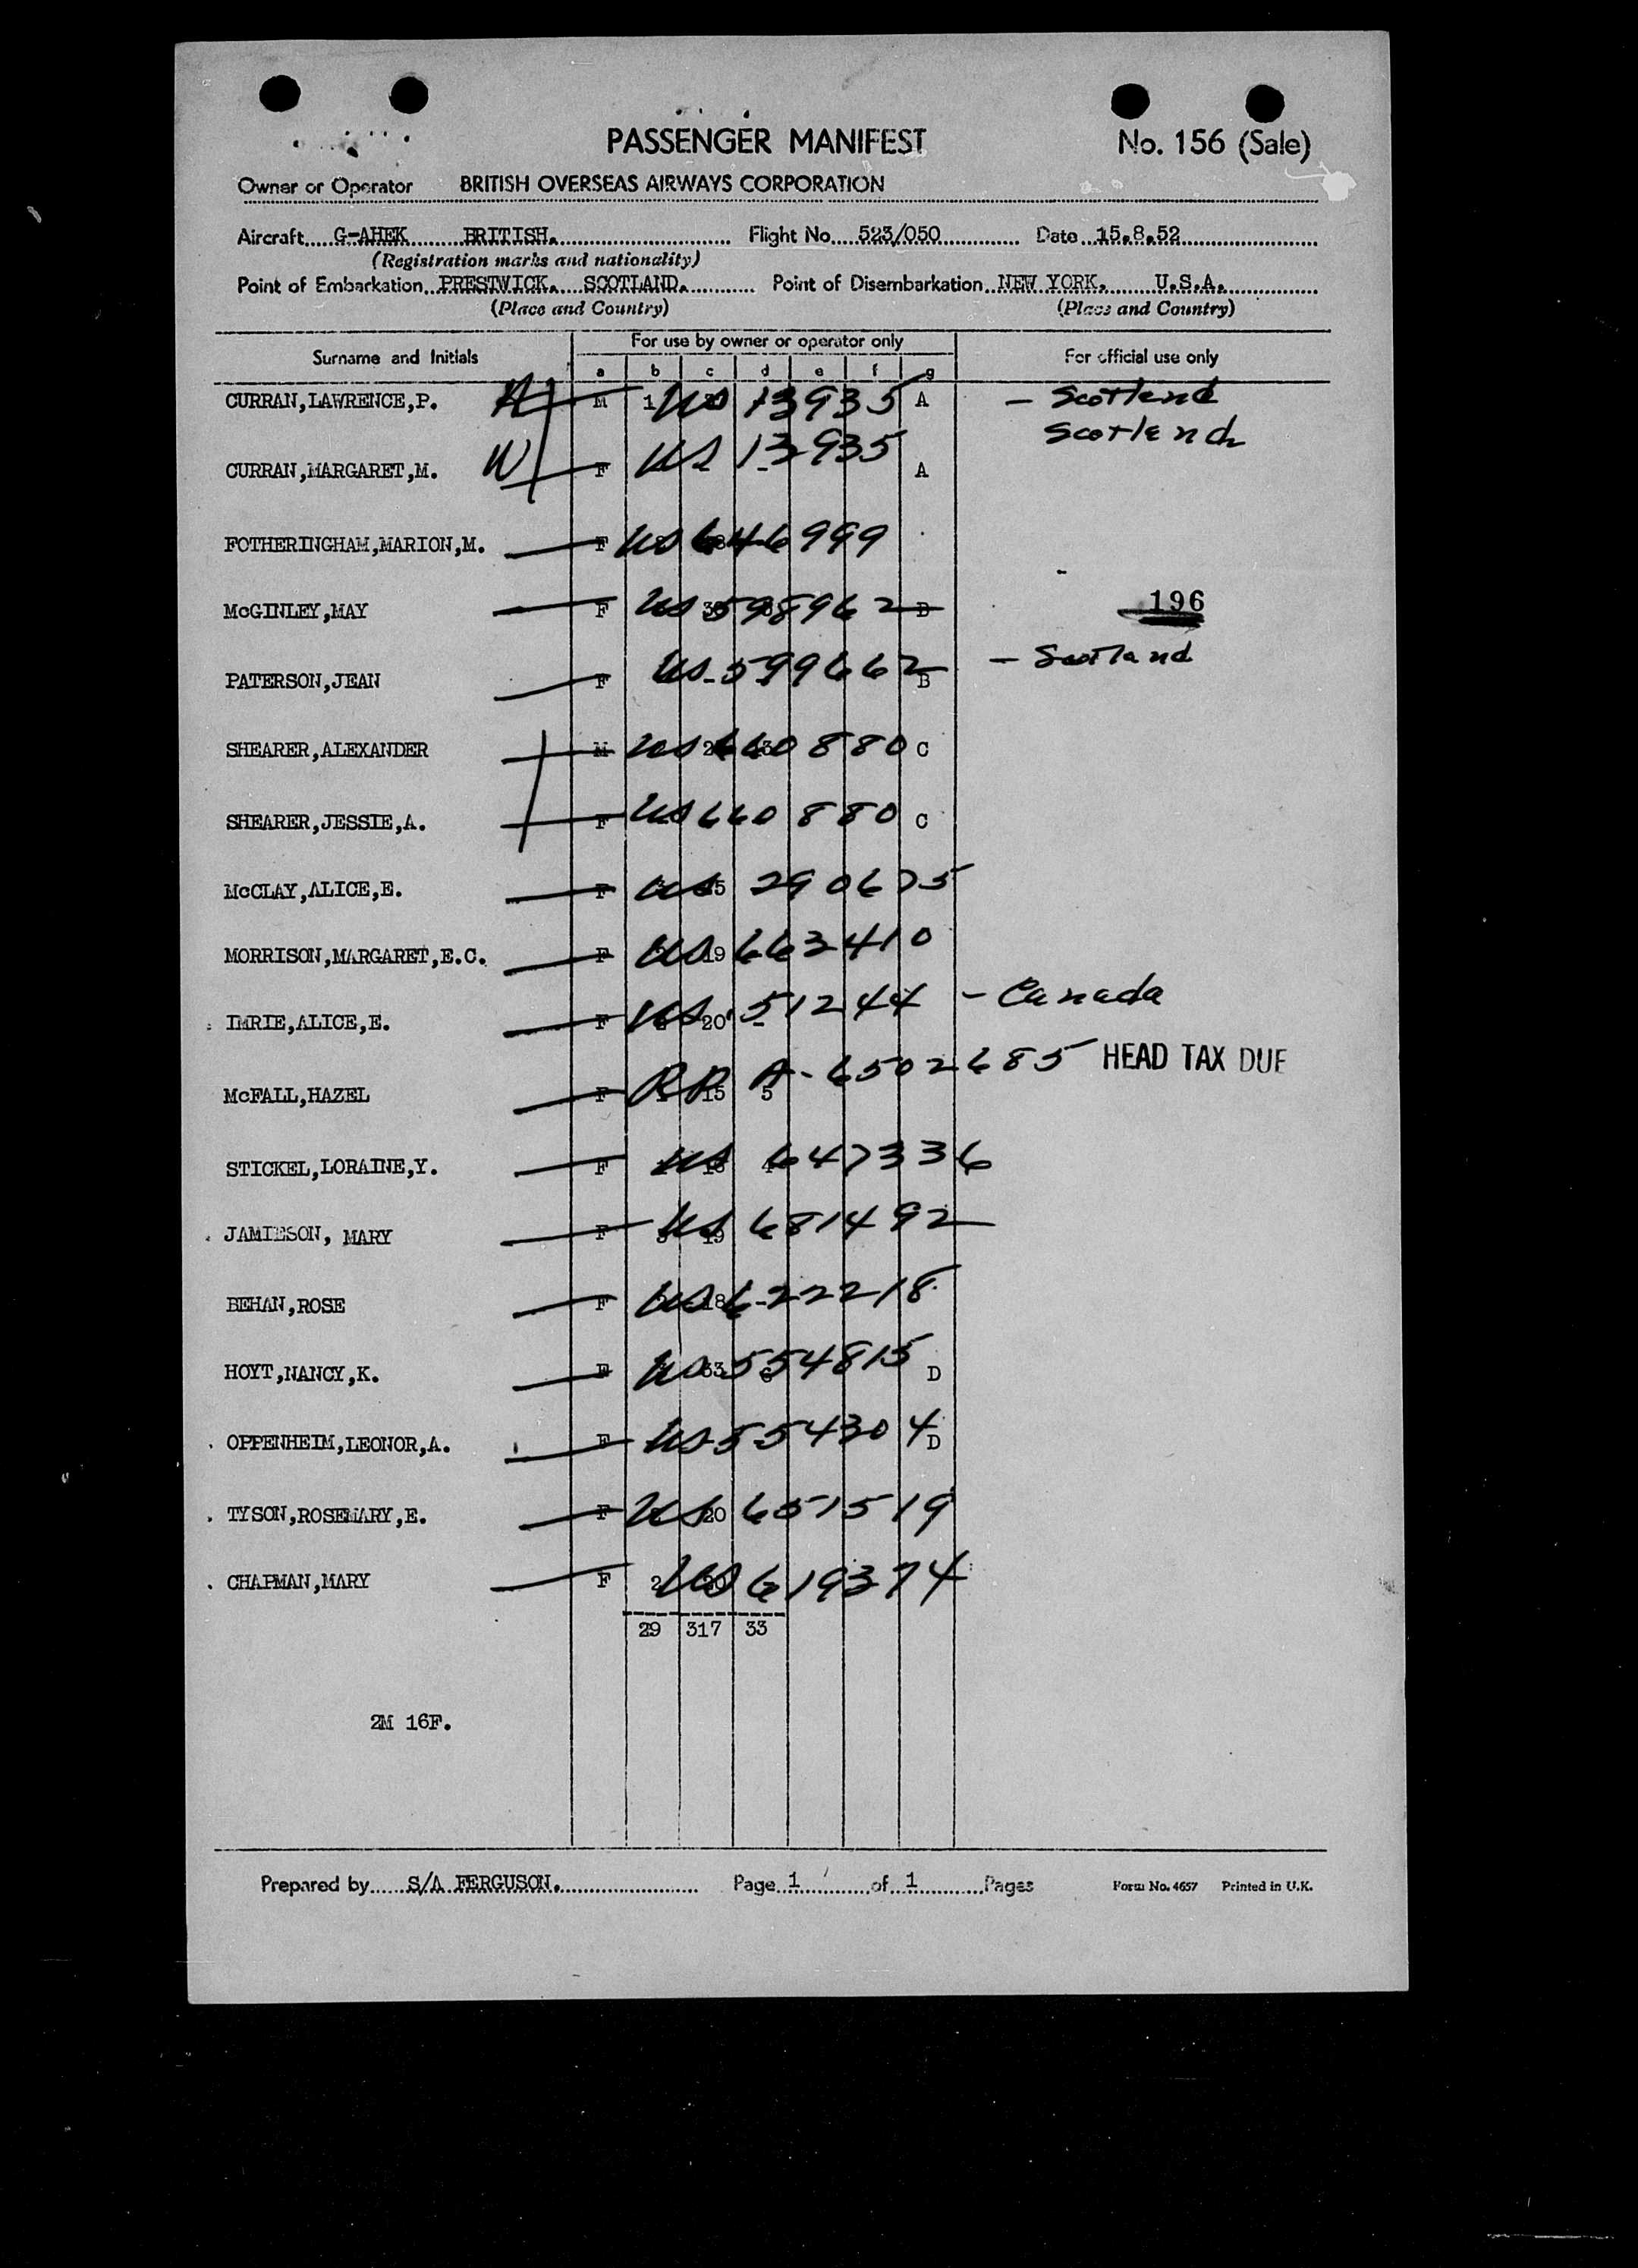 PASSENGER MANIFEST No. 156 (Sale)
Owner or Operator BRITISH OVERSEAS AIRWAYS CORPORATION
Aircraft G-AHEK BRITISH. Flight No. 523/050 Date 15.8.52
(Registration marks and nationality)
Point of Embarkation PRESTWICK. SCOTLAND. Point of Disembarkation NEW YORK. U.S.A.
(Place and Country) (Place and Country)
Surname and Initials For use by owner or operator only For official use only
a b c d e f g
CURRAN,LAWRENCE,P. H M 1 US 13935 A - Scotland
Scotland
CURRAN,MARGARET,M. W F US 13935 A
FOTHERINGHAM,MARION,M. F US 646999
McGINLEY,MAY F US 598962 D 196
PATERSON,JEAN F US 599662 B - Scotland
SHEARER,ALEXANDER M US 660880 C
SHEARER,JESSIE,A. F US 660880 C
McCLAY,ALICE,E. F US 15 290675
MORRISON,MARGARET,E.C. F US 19 663410
IMRIE,ALICE,E. F US 20 51244 - Canada
McFALL,HAZEL F RP 15 5 A-6502685 HEAD TAX DUE
STICKEL,LORAINE,Y. F US 647336
JAMIESON, MARY F US 19 681492
BEHAN,ROSE F US 18 622218
HOYT,NANCY,K. F US 33 554815 D
OPPENHEIM,LEONOR,A. F US 554304 D
TYSON,ROSEMARY,E. F US 20 651519
CHAPMAN,MARY F 2 US 619374
29 317 33
2M 16F.
Prepared by S/A FERGUSON. Page 1 of 1 Pages Form No. 4657 Printed in U.K.